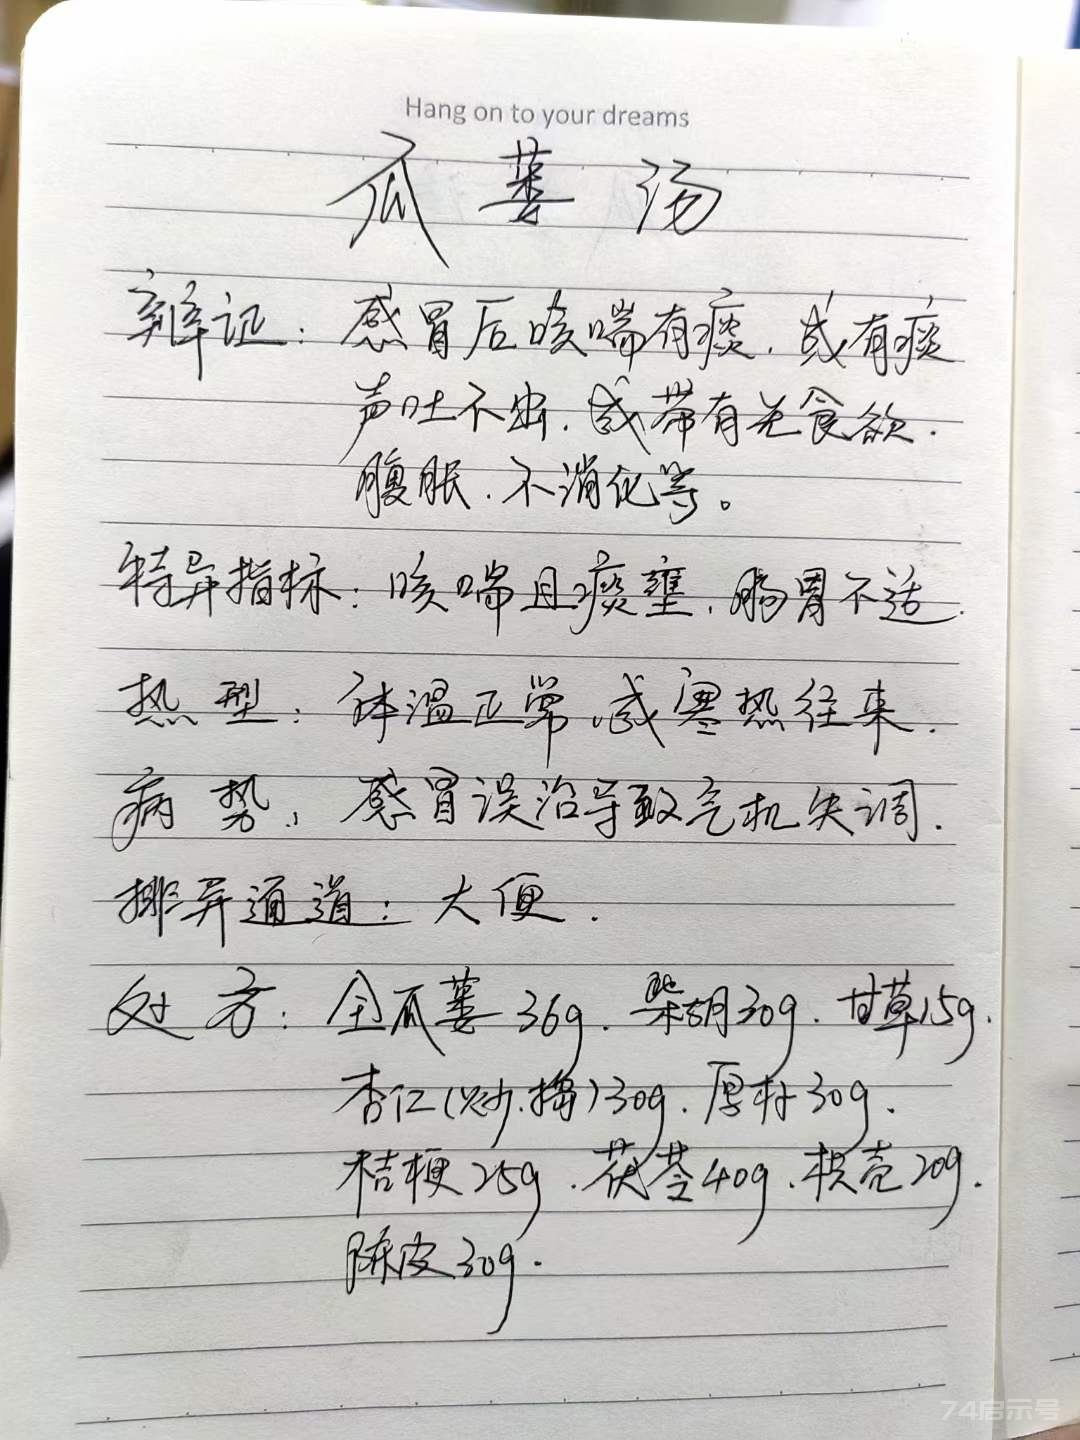 Hang on to your dreams
瓜蒌汤
辨证：感冒后咳喘有痰，或有痰
声吐不出，或带有无食欲．
腹胀．不消化等。
特异指标：咳喘且痰壅，肠胃不适．
热型：体温正常，或寒热往来．
病势：感冒误治导致气机失调．
排异通道：大便．
处方：全瓜蒌36g．柴胡30g．甘草15g．
杏仁(炒．捣)30g．厚朴30g．
桔梗25g．茯苓40g．枳壳20g．
陈皮30g．
74启示号